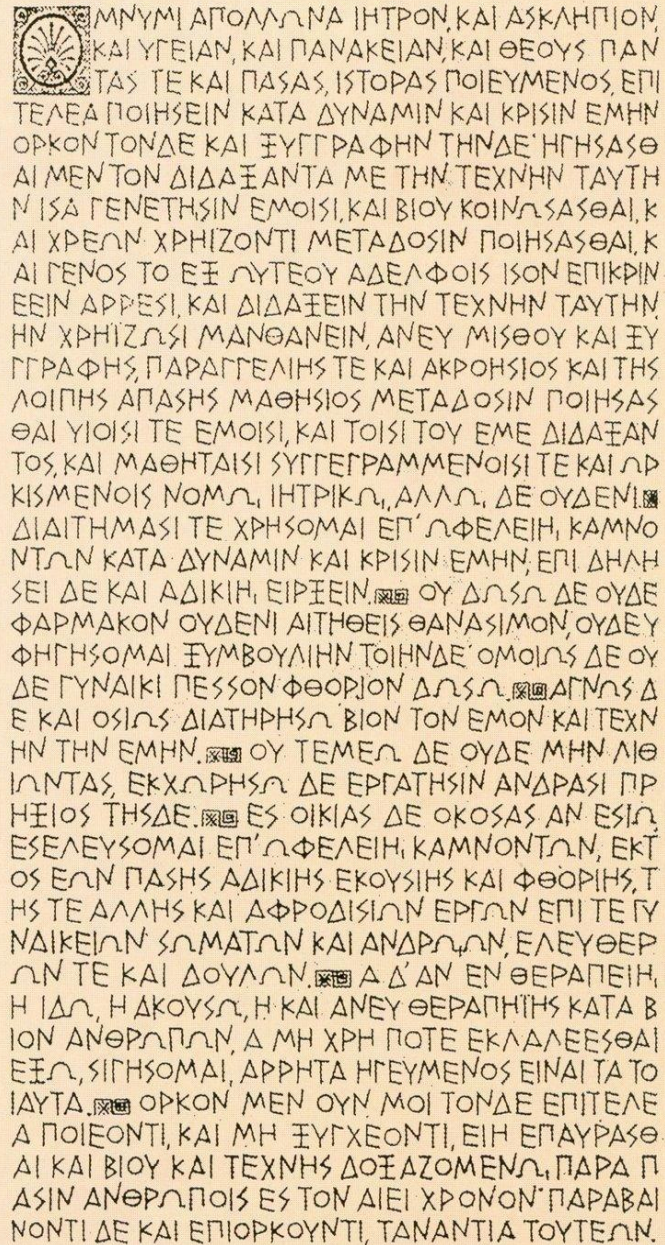 ΟΜΝΥΜΙ ΑΠΟΛΛΩΝΑ ΙΗΤΡΟΝ, ΚΑΙ ΑΣΚΛΗΠΙΟΝ,
ΚΑΙ ΥΓΕΙΑΝ, ΚΑΙ ΠΑΝΑΚΕΙΑΝ, ΚΑΙ ΘΕΟΥΣ ΠΑΝ
ΤΑΣ ΤΕ ΚΑΙ ΠΑΣΑΣ, ΙΣΤΟΡΑΣ ΠΟΙΕΥΜΕΝΟΣ, ΕΠΙ
ΤΕΛΕΑ ΠΟΙΗΣΕΙΝ ΚΑΤΑ ΔΥΝΑΜΙΝ ΚΑΙ ΚΡΙΣΙΝ ΕΜΗΝ
ΟΡΚΟΝ ΤΟΝΔΕ ΚΑΙ ΞΥΓΓΡΑΦΗΝ ΤΗΝΔΕ· ΗΓΗΣΑΣΘ
ΑΙ ΜΕΝ ΤΟΝ ΔΙΔΑΞΑΝΤΑ ΜΕ ΤΗΝ ΤΕΧΝΗΝ ΤΑΥΤΗ
Ν ΙΣΑ ΓΕΝΕΤΗΣΙΝ ΕΜΟΙΣΙ, ΚΑΙ ΒΙΟΥ ΚΟΙΝΩΣΑΣΘΑΙ, Κ
ΑΙ ΧΡΕΩΝ ΧΡΗΙΖΟΝΤΙ ΜΕΤΑΔΟΣΙΝ ΠΟΙΗΣΑΣΘΑΙ, Κ
ΑΙ ΓΕΝΟΣ ΤΟ ΕΞ ΩΥΤΕΟΥ ΑΔΕΛΦΟΙΣ ΙΣΟΝ ΕΠΙΚΡΙΝ
ΕΕΙΝ ΑΡΡΕΣΙ, ΚΑΙ ΔΙΔΑΞΕΙΝ ΤΗΝ ΤΕΧΝΗΝ ΤΑΥΤΗΝ,
ΗΝ ΧΡΗΪΖΩΣΙ ΜΑΝΘΑΝΕΙΝ, ΑΝΕΥ ΜΙΣΘΟΥ ΚΑΙ ΞΥ
ΓΓΡΑΦΗΣ, ΠΑΡΑΓΓΕΛΙΗΣ ΤΕ ΚΑΙ ΑΚΡΟΗΣΙΟΣ ΚΑΙ ΤΗΣ
ΛΟΙΠΗΣ ΑΠΑΣΗΣ ΜΑΘΗΣΙΟΣ ΜΕΤΑΔΟΣΙΝ ΠΟΙΗΣΑΣ
ΘΑΙ ΥΙΟΙΣΙ ΤΕ ΕΜΟΙΣΙ, ΚΑΙ ΤΟΙΣΙ ΤΟΥ ΕΜΕ ΔΙΔΑΞΑΝ
ΤΟΣ, ΚΑΙ ΜΑΘΗΤΑΙΣΙ ΣΥΓΓΕΓΡΑΜΜΕΝΟΙΣΙ ΤΕ ΚΑΙ ΩΡ
ΚΙΣΜΕΝΟΙΣ ΝΟΜΩͺ ΙΗΤΡΙΚΩͺ, ΑΛΛΩͺ ΔΕ ΟΥΔΕΝΙ.
ΔΙΑΙΤΗΜΑΣΙ ΤΕ ΧΡΗΣΟΜΑΙ ΕΠ᾽ ΩΦΕΛΕΙΗͺ ΚΑΜΝΟ
ΝΤΩΝ ΚΑΤΑ ΔΥΝΑΜΙΝ ΚΑΙ ΚΡΙΣΙΝ ΕΜΗΝ, ΕΠΙ ΔΗΛΗ
ΣΕΙ ΔΕ ΚΑΙ ΑΔΙΚΙΗͺ ΕΙΡΞΕΙΝ. ΟΥ ΔΩΣΩ ΔΕ ΟΥΔΕ
ΦΑΡΜΑΚΟΝ ΟΥΔΕΝΙ ΑΙΤΗΘΕΙΣ ΘΑΝΑΣΙΜΟΝ, ΟΥΔΕ Υ
ΦΗΓΗΣΟΜΑΙ ΞΥΜΒΟΥΛΙΗΝ ΤΟΙΗΝΔΕ· ΟΜΟΙΩΣ ΔΕ ΟΥ
ΔΕ ΓΥΝΑΙΚΙ ΠΕΣΣΟΝ ΦΘΟΡΙΟΝ ΔΩΣΩ. ΑΓΝΩΣ Δ
Ε ΚΑΙ ΟΣΙΩΣ ΔΙΑΤΗΡΗΣΩ ΒΙΟΝ ΤΟΝ ΕΜΟΝ ΚΑΙ ΤΕΧΝ
ΗΝ ΤΗΝ ΕΜΗΝ. ΟΥ ΤΕΜΕΩ ΔΕ ΟΥΔΕ ΜΗΝ ΛΙΘ
ΙΩΝΤΑΣ, ΕΚΧΩΡΗΣΩ ΔΕ ΕΡΓΑΤΗΣΙΝ ΑΝΔΡΑΣΙ ΠΡ
ΗΞΙΟΣ ΤΗΣΔΕ. ΕΣ ΟΙΚΙΑΣ ΔΕ ΟΚΟΣΑΣ ΑΝ ΕΣΙΩ,
ΕΣΕΛΕΥΣΟΜΑΙ ΕΠ᾽ ΩΦΕΛΕΙΗͺ ΚΑΜΝΟΝΤΩΝ, ΕΚΤ
ΟΣ ΕΩΝ ΠΑΣΗΣ ΑΔΙΚΙΗΣ ΕΚΟΥΣΙΗΣ ΚΑΙ ΦΘΟΡΙΗΣ, Τ
ΗΣ ΤΕ ΑΛΛΗΣ ΚΑΙ ΑΦΡΟΔΙΣΙΩΝ ΕΡΓΩΝ ΕΠΙ ΤΕ ΓΥ
ΝΑΙΚΕΙΩΝ ΣΩΜΑΤΩΝ ΚΑΙ ΑΝΔΡΩͺΩΝ, ΕΛΕΥΘΕΡ
ΩΝ ΤΕ ΚΑΙ ΔΟΥΛΩΝ. Α Δ᾽ ΑΝ ΕΝ ΘΕΡΑΠΕΙΗͺ
Η ΙΔΩ, Η ΑΚΟΥΣΩ, Η ΚΑΙ ΑΝΕΥ ΘΕΡΑΠΗΪΗΣ ΚΑΤΑ Β
ΙΟΝ ΑΝΘΡΩΠΩΝ, Α ΜΗ ΧΡΗ ΠΟΤΕ ΕΚΛΑΛΕΕΣΘΑΙ
ΕΞΩ, ΣΙΓΗΣΟΜΑΙ, ΑΡΡΗΤΑ ΗΓΕΥΜΕΝΟΣ ΕΙΝΑΙ ΤΑ ΤΟ
ΙΑΥΤΑ. ΟΡΚΟΝ ΜΕΝ ΟΥΝ ΜΟΙ ΤΟΝΔΕ ΕΠΙΤΕΛΕ
Α ΠΟΙΕΟΝΤΙ, ΚΑΙ ΜΗ ΞΥΓΧΕΟΝΤΙ, ΕΙΗ ΕΠΑΥΡΑΣΘ
ΑΙ ΚΑΙ ΒΙΟΥ ΚΑΙ ΤΕΧΝΗΣ ΔΟΞΑΖΟΜΕΝΩͺ ΠΑΡΑ Π
ΑΣΙΝ ΑΝΘΡΩΠΟΙΣ ΕΣ ΤΟΝ ΑΙΕΙ ΧΡΟΝΟΝ· ΠΑΡΑΒΑΙ
ΝΟΝΤΙ ΔΕ ΚΑΙ ΕΠΙΟΡΚΟΥΝΤΙ, ΤΑΝΑΝΤΙΑ ΤΟΥΤΕΩΝ.